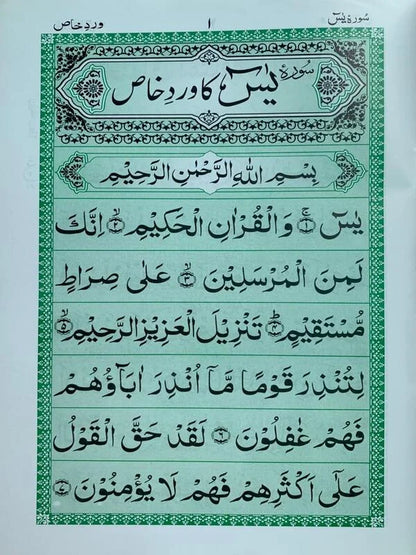 سورۂ یٰسٓ
۱
وردِ خاص
سورۂ یٰسٓ کا وردِ خاص
بِسْمِ اللهِ الرَّحْمٰنِ الرَّحِيْمِ
يٰسٓ ۚ﴿۱﴾ وَالْقُرْاٰنِ الْحَكِيْمِ ۙ﴿۲﴾ اِنَّكَ
لَمِنَ الْمُرْسَلِيْنَ ۙ﴿۳﴾ عَلٰى صِرَاطٍ
مُّسْتَقِيْمٍ ؕ﴿۴﴾ تَنْزِيْلَ الْعَزِيْزِ الرَّحِيْمِ ۙ﴿۵﴾
لِتُنْذِرَ قَوْمًا مَّاۤ اُنْذِرَ اٰبَآؤُهُمْ
فَهُمْ غٰفِلُوْنَ ﴿۶﴾ لَقَدْ حَقَّ الْقَوْلُ
عَلٰۤى اَكْثَرِهِمْ فَهُمْ لَا يُؤْمِنُوْنَ ﴿۷﴾